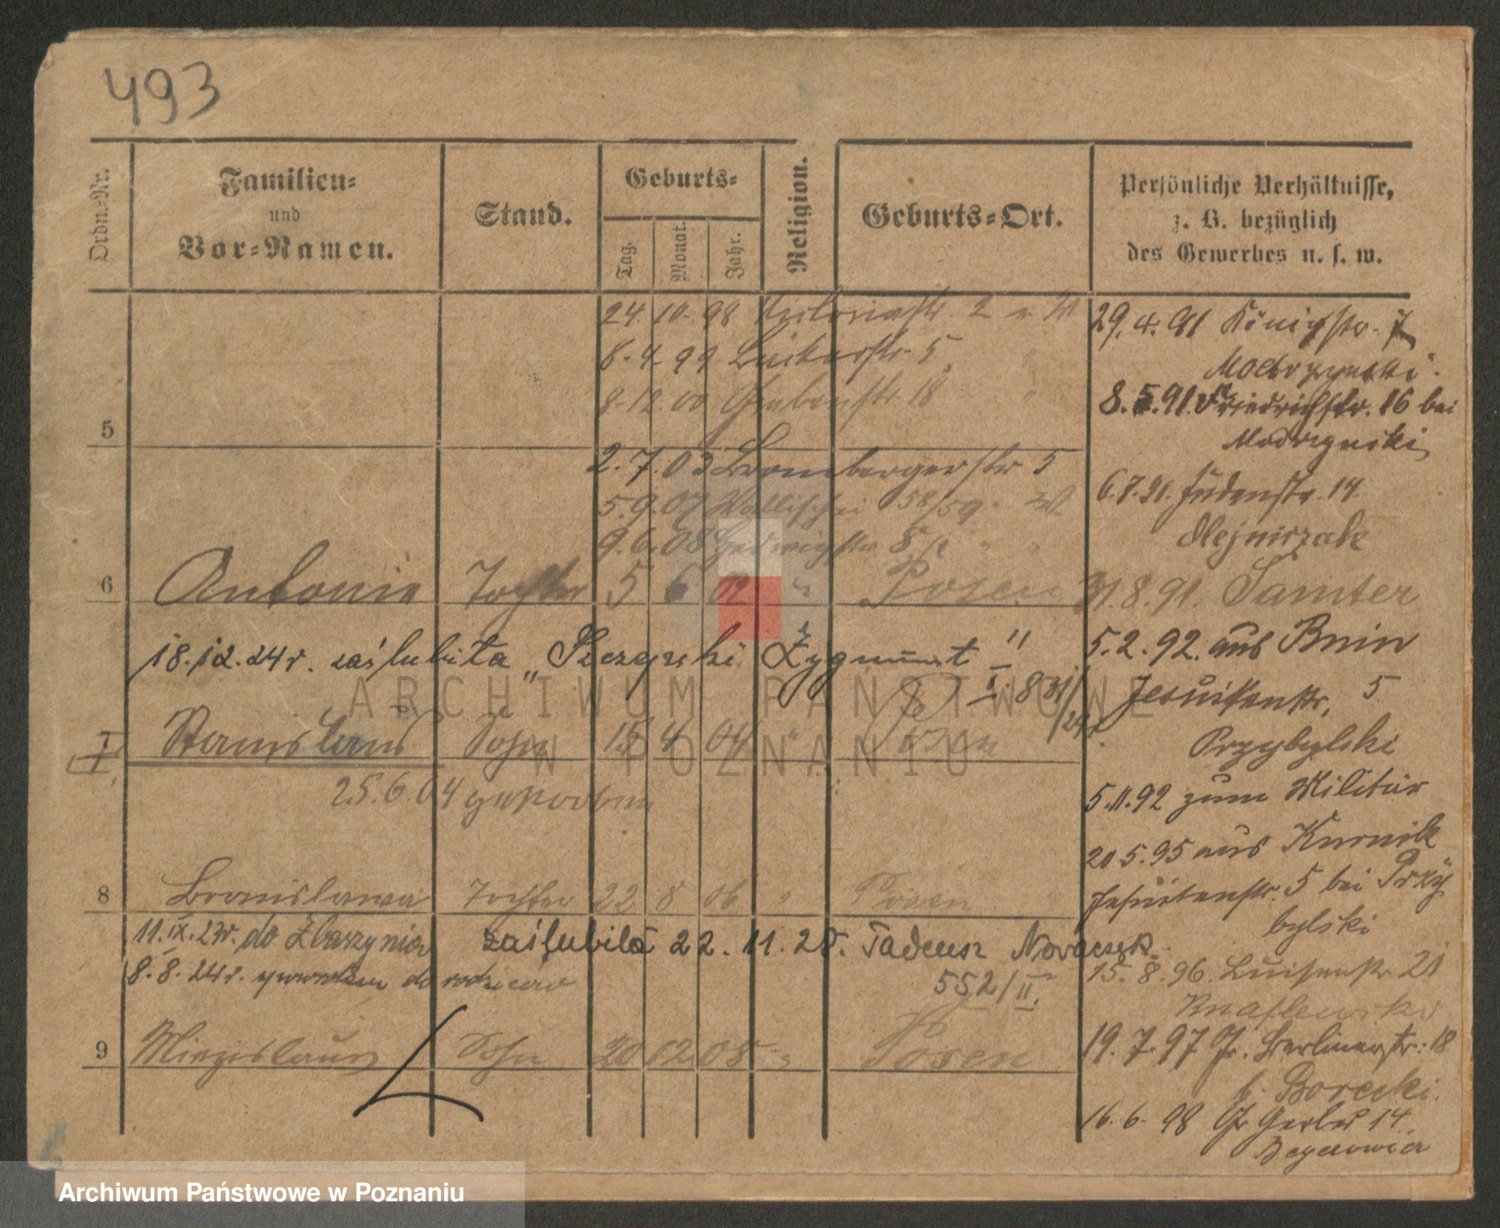 493
Ordn.-Nr.
Familien-
und
Vor-Namen.
Stand.
Geburts-
Tag.
Monat.
Jahr.
Religion.
Geburts-Ort.
Persönliche Verhältnisse,
z. B. bezüglich
des Gewerbes u. s. w.
24 10. 98 Victoriastr. 2
6. 4. 99 Bäckerstr. 5
8. 12. 00 Grabenstr 18
5
2. 7. 03 Brombergerstr 5
5. 9. 07 Wallischei 58/59
9. 6. 08 Hedwigstr 8
6 Antonie Tochter 5 6 02 " Posen
18.12.24r. zaślubiła „Szczęski Zygmunt"
I 831/24r
7 Stanislaus Sohn 15 4 04 " Posen
25.6.04 gestorben
8 Bronislawa Tochter 22 8 06 " Posen
11.IX.23r. do Zbąszynia zaślubiła 22.11.28. Tadeusz Nowaczyk
8.8.24r. do rodziców 552/II.
9 Miezislaus Sohn 20 02 08 " Posen
29.4.91 Königstr. 7
Modrzynski.
8.5.91. Friedrichstr. 16 bei
Modrzynski
6.7.91. Judenstr. 14
Olejniczak
31.8.91. Samter
5.2.92. aus Bnin
Jesuitenstr. 5
Przybylski
5.11.92 zum Militär
20.5.95 aus Kurnik
Jesuitenstr. 5 bei Przy
bylski
15.8.96. Luisenstr 21
19.7.97 Gr. Berlinerstr. 18
b. Borecki.
16.6.98 Gr Gerber 14
ARCHIWUM PAŃSTWOWE
W POZNANIU
Archiwum Państwowe w Poznaniu